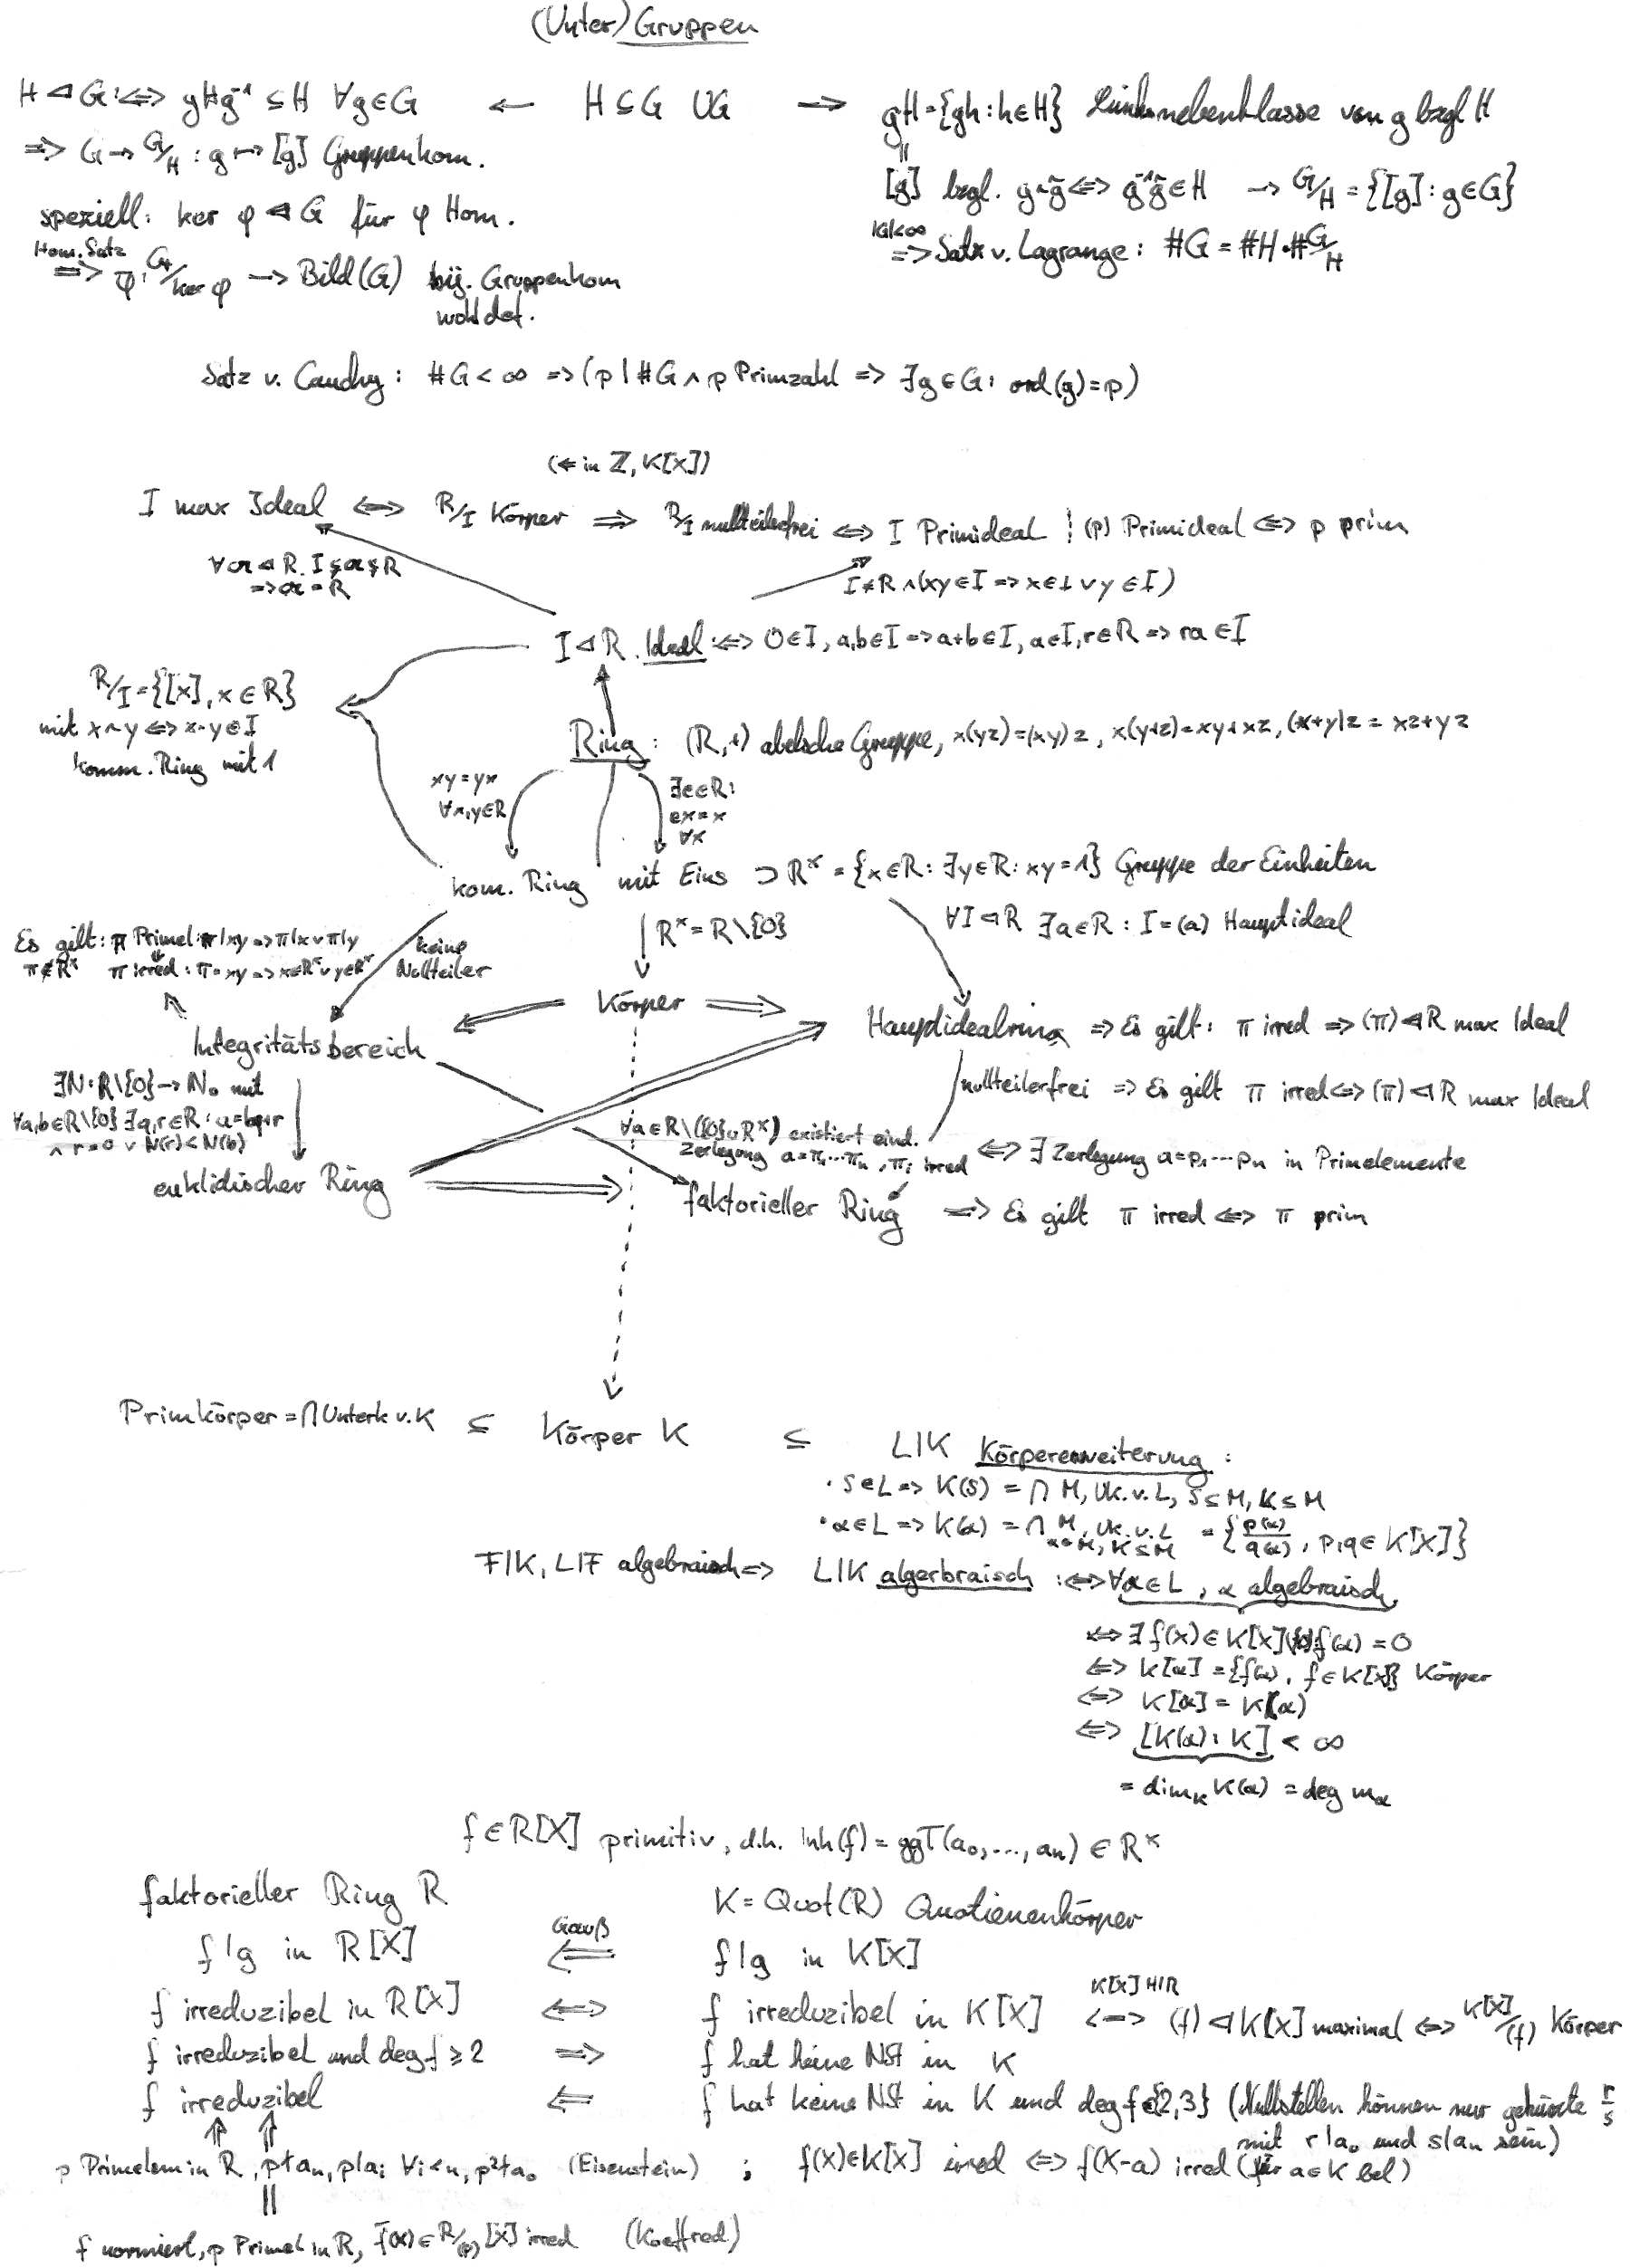 (Unter) Gruppen
H ⊲ G :⟺ gHg⁻¹ ⊆ H ∀g∈G ← H ⊆ G UG → gH = {gh : h∈H} Linksnebenklasse von g bzgl H
⟹ G → G/H : g ↦ [g] Gruppenhom.
[g] bzgl. g~g̃ ⟺ g⁻¹g̃ ∈ H → G/H = {[g] : g∈G}
speziell: ker φ ⊲ G für φ Hom.
|G|<∞
⟹ Satz v. Lagrange: #G = #H · #G/H
Hom. Satz
⟹ φ̄: G/ker φ → Bild(G) bij. Gruppenhom
wohldef.
Satz v. Cauchy: #G < ∞ ⟹ (p | #G ∧ p Primzahl ⟹ ∃g∈G: ord(g)=p)
(⇐ in ℤ, K[X])
I max Ideal ⟺ R/I Körper ⟹ R/I nullteilerfrei ⟺ I Primideal ¦ (p) Primideal ⟺ p prim
∀𝔞 ⊲ R. I ⊊ 𝔞 ⊊ R
⟹ 𝔞 = R
I ≠ R ∧ (xy∈I ⟹ x∈I ∨ y∈I)
I ⊲ R. Ideal :⟺ 0∈I, a,b∈I ⟹ a+b∈I, a∈I, r∈R ⟹ ra∈I
R/I = {[x], x∈R}
mit x~y ⟺ x-y∈I
komm. Ring mit 1
Ring: (R,+) abelsche Gruppe, x(yz)=(xy)z, x(y+z)=xy+xz, (x+y)z = xz+yz
xy = yx
∀x,y∈R
∃e∈R:
ex = x
∀x
kom. Ring mit Eins ⊃ Rˣ = {x∈R: ∃y∈R: xy=1} Gruppe der Einheiten
∀I⊲R ∃a∈R : I=(a) Hauptideal
Rˣ = R\{0}
Es gilt: π Primel: π|xy ⟹ π|x ∨ π|y
π∉Rˣ π irred: π=xy ⟹ x∈Rˣ ∨ y∈Rˣ
keine
Nullteiler
Körper
Integritätsbereich
Hauptidealring ⟹ Es gilt: π irred ⟹ (π) ⊲ R max Ideal
∃N: R\{0} → ℕ₀ mit
∀a,b∈R\{0} ∃q,r∈R: a=bq+r
∧ r=0 ∨ N(r)<N(b)
nullteilerfrei ⟹ Es gilt π irred ⟺ (π) ⊲ R max Ideal
∀a∈R\({0}∪Rˣ) existiert eind.
Zerlegung a=π₁…πₙ, πᵢ irred ⟺ ∃ Zerlegung a=p₁…pₙ in Primelemente
euklidischer Ring
faktorieller Ring ⟹ Es gilt π irred ⟺ π prim
Primkörper = ⋂ Unterk v. K ⊆ Körper K ⊆ L|K Körpererweiterung:
· S∈L ⟹ K(S) = ⋂ M, Uk. v. L, S⊆M, K⊆M
· α∈L ⟹ K(α) = ⋂ M, Uk. v. L α∈M, K⊆M = {p(α)/q(α), p,q∈K[X]}
F|K, L|F algebraisch ⟹ L|K algerbraisch :⟺ ∀α∈L, α algebraisch
⟺ ∃f(x)∈K[X]\{0}: f(α) = 0
⟺ K[α] = {f(α), f∈K[X]} Körper
⟺ K[α] = K(α)
⟺ [K(α):K] < ∞
= dimₖ K(α) = deg m_α
f∈R[X] primitiv, d.h. Inh(f) = ggT(a₀,…,aₙ) ∈ Rˣ
faktorieller Ring R K = Quot(R) Quotienenkörper
f|g in R[X] Gauß ⟸ f|g in K[X]
f irreduzibel in R[X] ⟺ f irreduzibel in K[X] K[X] HIR ⟺ (f) ⊲ K[X] maximal ⟺ K[X]/(f) Körper
f irreduzibel und deg f ≥ 2 ⟹ f hat keine NSt in K
f irreduzibel ⟸ f hat keine NSt in K und deg f∈{2,3} (Nullstellen können nur gekürzte r/s
mit r|a₀ und s|aₙ sein)
p Primelem in R, p∤aₙ, p|aᵢ ∀i<n, p²∤a₀ (Eisenstein) ; f(X)∈K[X] irred ⟺ f(X-a) irred (für a∈K bel)
f normiert, p Primel in R, f̄(x)∈R/(p)[X] irred (Koeffred)